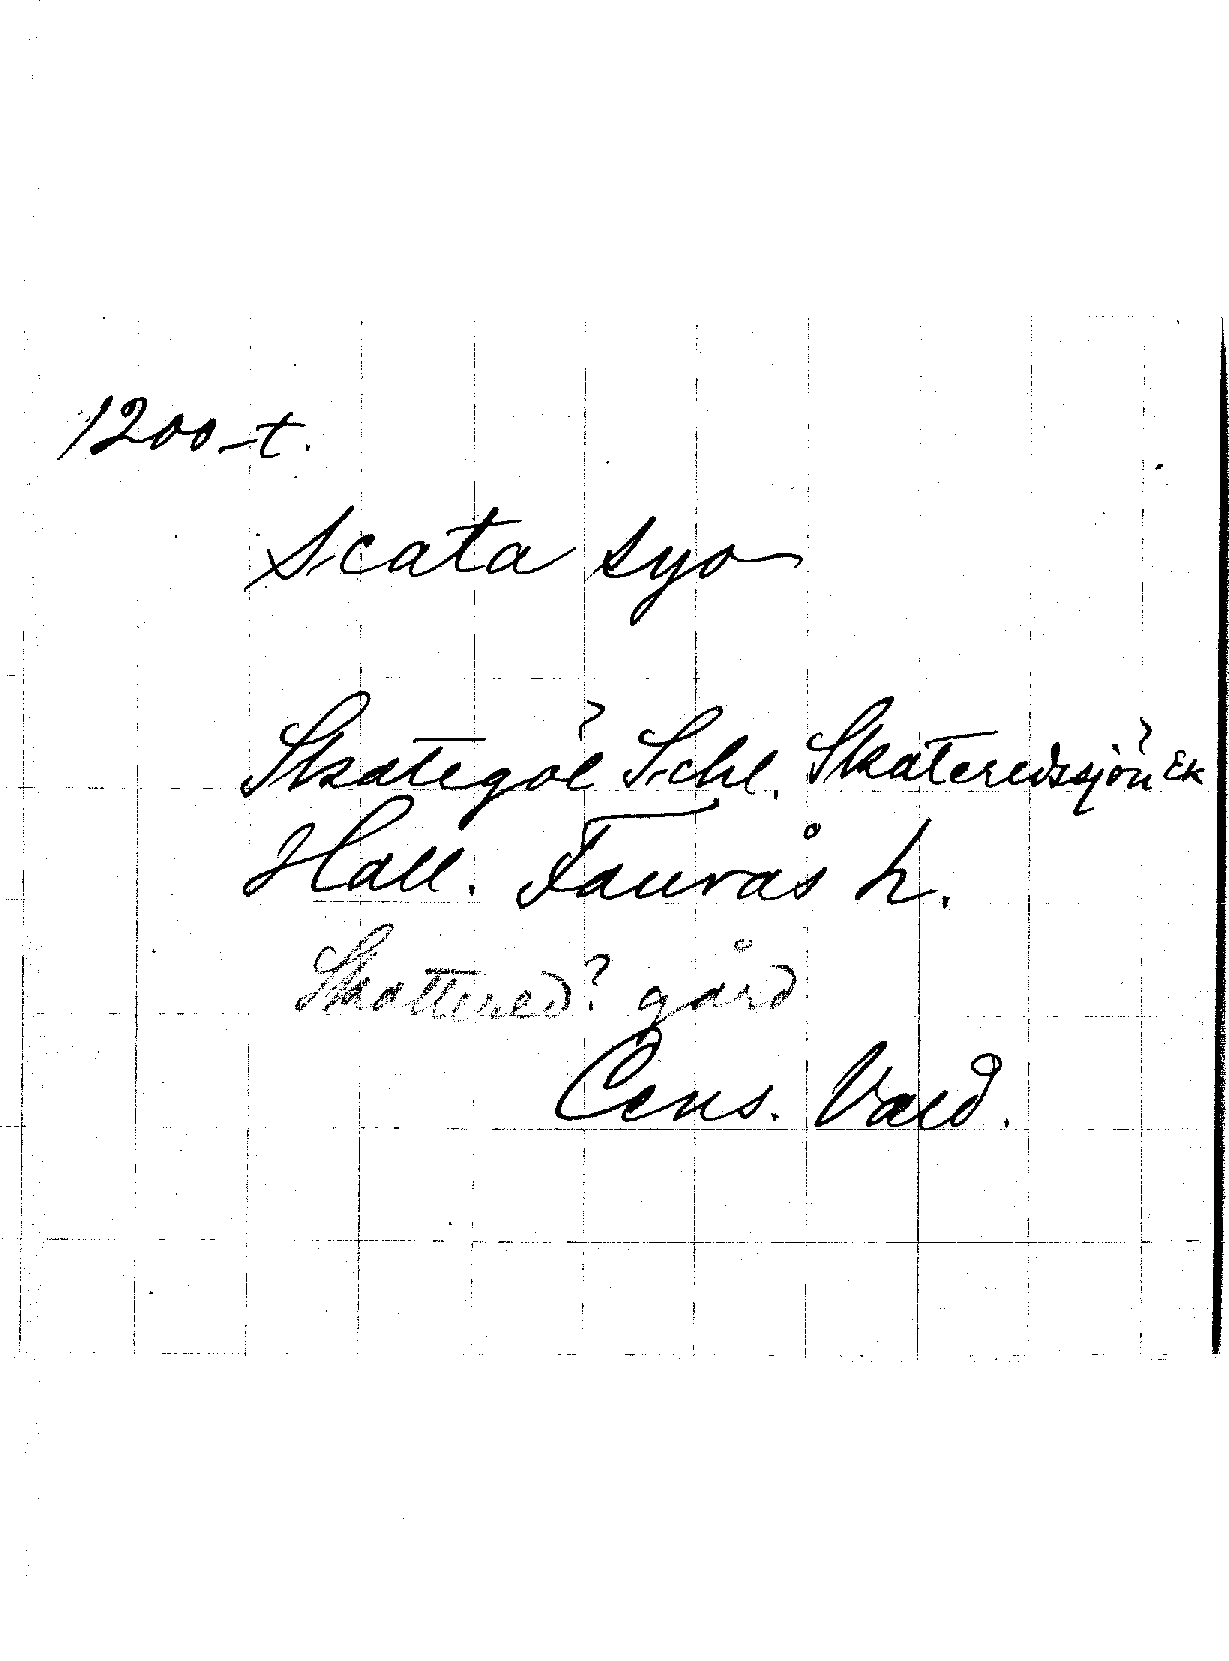 1200-t.
Scata syo
Skategöl Schl. Skateredssjön EK
Hall. Faurås h.
Skattered? gård
Cens. Vald.